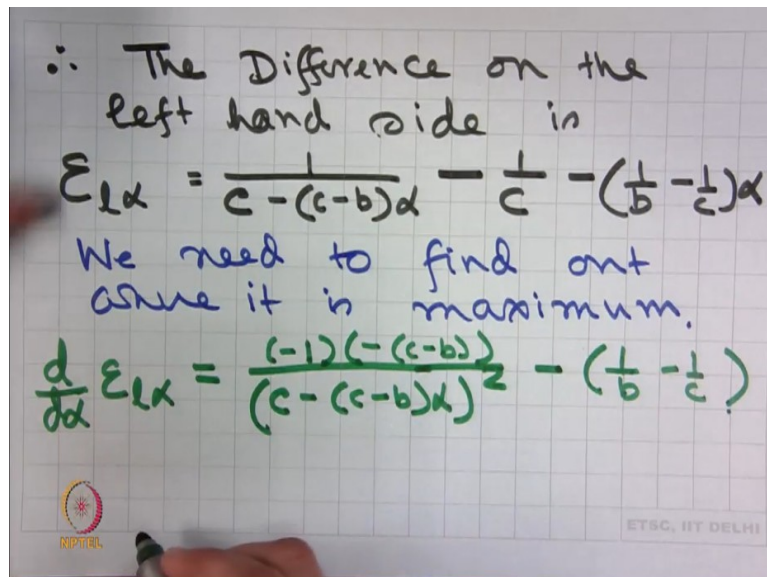 ∴ The Difference on the
left hand side is
ε_{lα} = 1/(c - (c-b)α) - 1/c - (1/b - 1/c)α
We need to find out
where it is maximum.
d/dα ε_{lα} = (-1)(-(c-b))/(c - (c-b)α)^2 - (1/b - 1/c)
NPTEL
ETSC, IIT DELHI